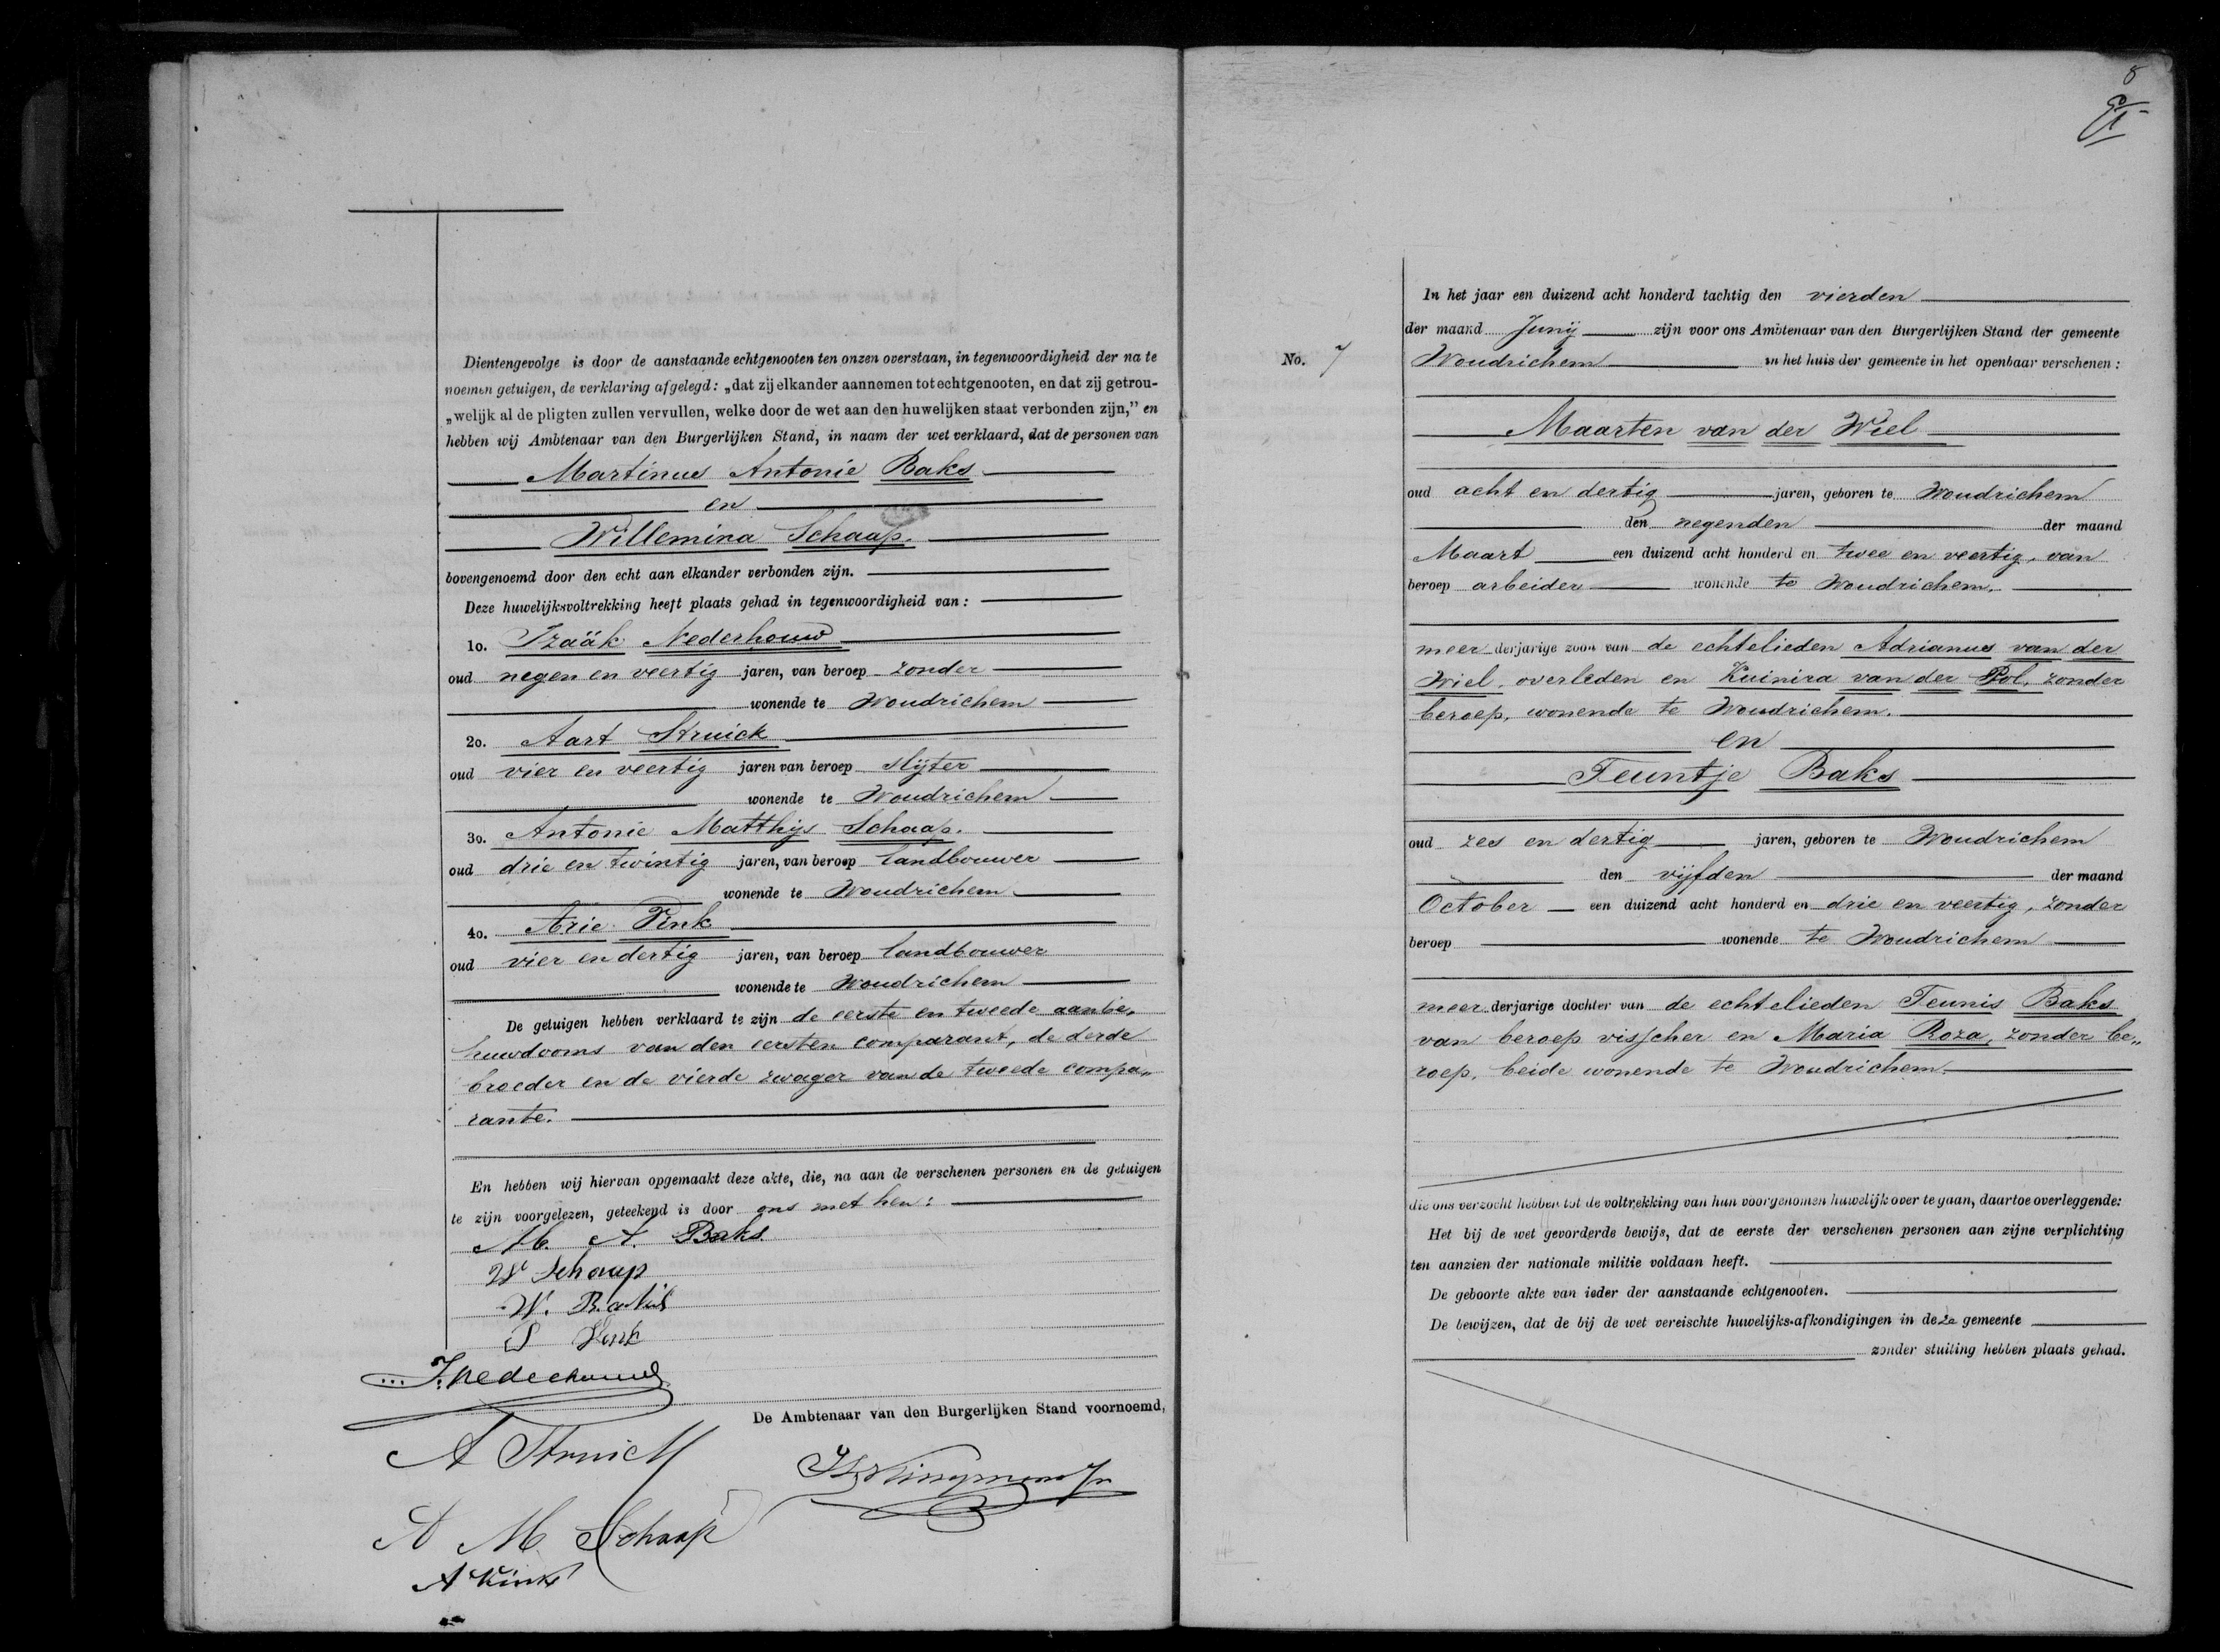 Dientengevolge is door de aanstaande echtgenooten ten onzen overstaan, in tegenwoordigheid der na te
noemen getuigen, de verklaring afgelegd: „dat zij elkander aannemen tot echtgenooten, en dat zij getrou-
„welijk al de pligten zullen vervullen, welke door de wet aan den huwelijken staat verbonden zijn,” en
hebben wij Ambtenaar van den Burgerlijken Stand, in naam der wet verklaard, dat de personen van
Martinus Antonie Baks
en
Willemina Schaap.
bovengenoemd door den echt aan elkander verbonden zijn.
Deze huwelijksvoltrekking heeft plaats gehad in tegenwoordigheid van:
1o. Izaäk Nederhouw
oud negen en veertig jaren, van beroep zonder
wonende te Woudrichem
2o. Aart Struick
oud vier en veertig jaren van beroep slijter
wonende te Woudrichem
3o. Antonie Matthijs Schaap.
oud drie en twintig jaren, van beroep landbouwer
wonende te Woudrichem
4o. Arie
oud vier en dertig jaren, van beroep landbouwer
wonende te Woudrichem
De getuigen hebben verklaard te zijn de eerste en tweede aanbe„
huwdooms van den eersten comparant, de derde
broeder en de vierde zwager van de tweede compa„
rante.
En hebben wij hiervan opgemaakt deze akte, die, na aan de verschenen personen en de getuigen
te zijn voorgelezen, geteekend is door ons met hen:
M. A. Baks.
W Schaap
W. Baks
I. Nederhouw
De Ambtenaar van den Burgerlijken Stand voornoemd,
A Struick
A M Schaap
8
No. 7
In het jaar een duizend acht honderd tachtig den vierden
der maand Junij zijn voor ons Ambtenaar van den Burgerlijken Stand der gemeente
Woudrichem in het huis der gemeente in het openbaar verschenen:
Maarten van der Wiel
oud acht en dertig jaren, geboren te Woudrichem
den negenden der maand
Maart een duizend acht honderd en twee en veertig, van
beroep arbeider wonende te Woudrichem.
meer derjarige zoon van de echtelieden Adrianus van der
Wiel, overleden en Kuinira van der Pol, zonder
beroep, wonende te Woudrichem.
en
Teuntje Baks
oud zes en dertig jaren, geboren te Woudrichem
den vijfden der maand
October een duizend acht honderd en drie en veertig, zonder
beroep wonende te Woudrichem
meer derjarige dochter van de echtelieden Teunis Baks
van beroep visscher en Maria Roza, zonder be„
roep, beide wonende te Woudrichem.
die ons verzocht hebben tot de voltrekking van hun voorgenomen huwelijk over te gaan, daartoe overleggende:
Het bij de wet gevorderde bewijs, dat de eerste der verschenen personen aan zijne verplichting
ten aanzien der nationale militie voldaan heeft.
De geboorte akte van ieder der aanstaande echtgenooten.
De bewijzen, dat de bij de wet vereischte huwelijks-afkondigingen in deze gemeente
zonder stuiting hebben plaats gehad.